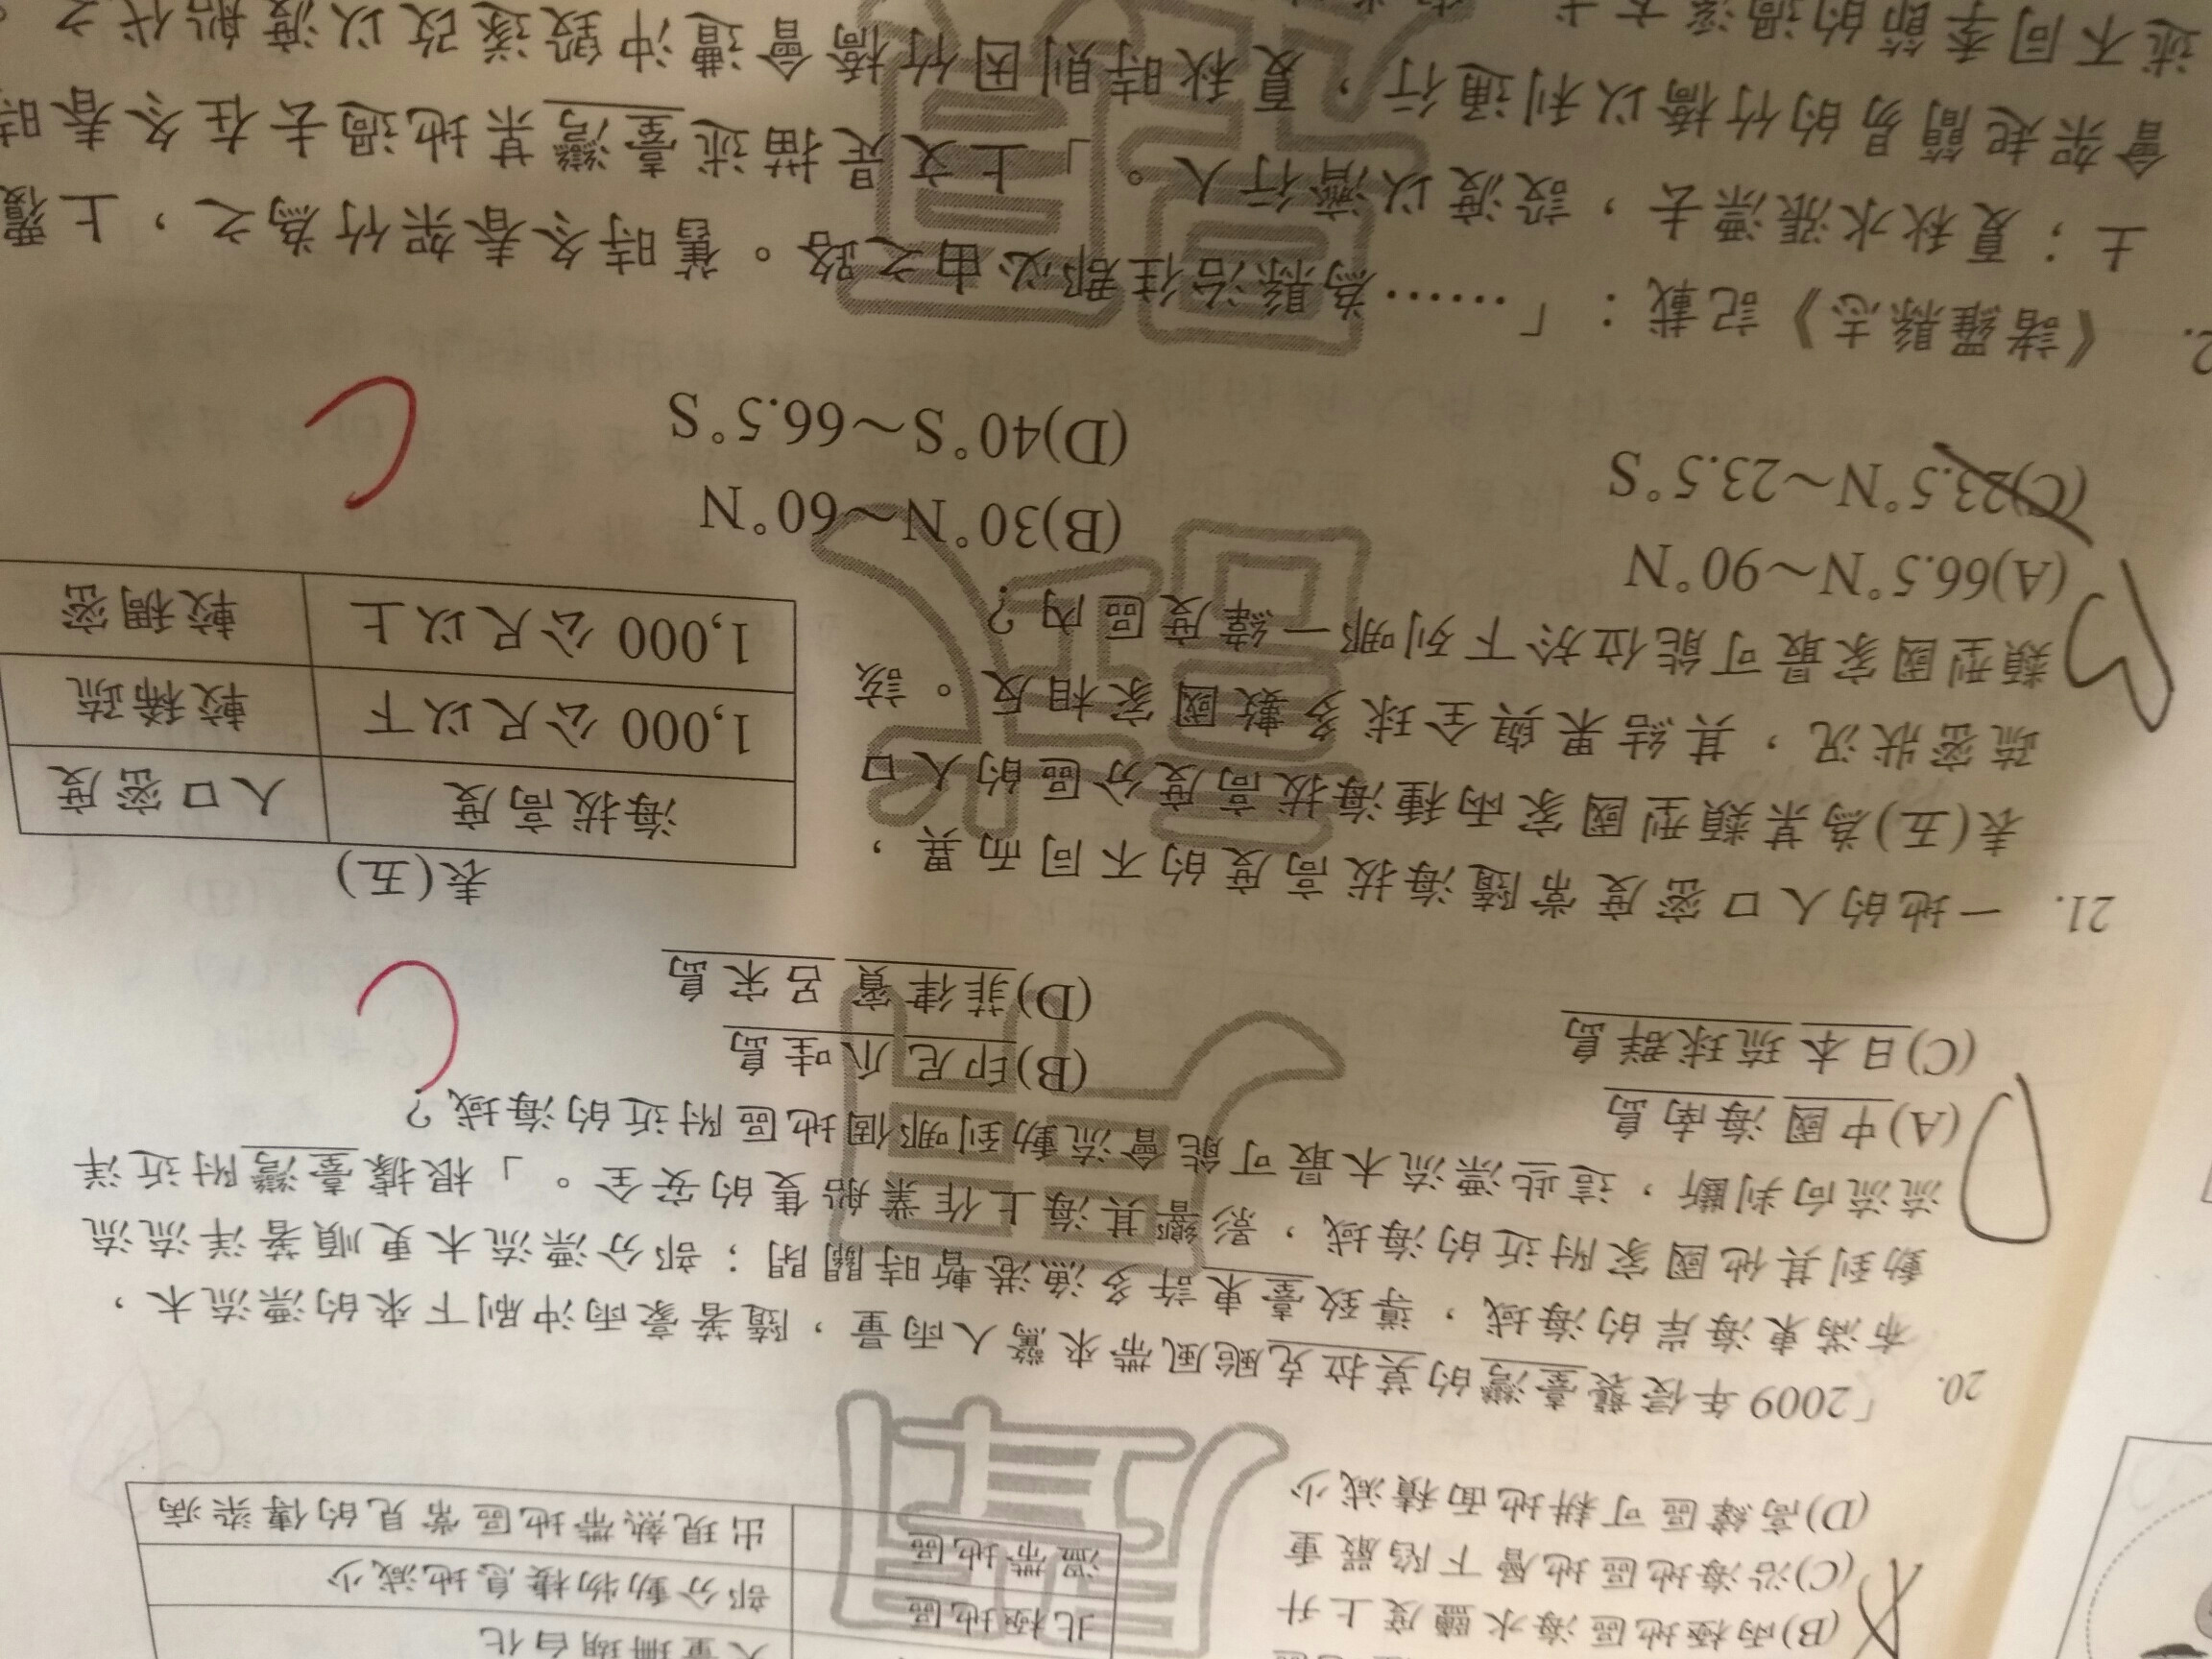 人量珊瑚白化
北極地區 部分動物棲息地減少
溫帶地區 出現熱帶地區常見的傳染病
(B)兩極地區海水鹽度上升
(C)沿海地區地層下陷嚴重
(D)高緯區可耕地面積減少
20. 「2009年侵襲臺灣的莫拉克颱風帶來驚人雨量，隨著豪雨沖刷下來的漂流木，
布滿東海岸的海域，導致臺東許多漁港暫時關閉；部分漂流木更順著洋流流
動到其他國家附近的海域，影響其海上作業船隻的安全。」根據臺灣附近洋
流流向判斷，這些漂流木最可能會流動到哪個地區附近的海域？
(A)中國 海南島 (B)印尼 爪哇島
(C)日本 琉球群島 (D)菲律賓 呂宋島
21. 一地的人口密度常隨海拔高度的不同而異，
表(五)為某類型國家兩種海拔高度分區的人口
疏密狀況，其結果與全球多數國家相反。該
類型國家最可能位於下列哪一緯度區內？
(A)66.5°N～90°N (B)30°N～60°N
(C)23.5°N～23.5°S (D)40°S～66.5°S
表(五)
海拔高度 人口密度
1,000公尺以下 較稀疏
1,000公尺以上 較稠密
2. 《諸羅縣志》記載：「……為縣治往郡必由之路。舊時冬春架竹為之，上覆
土；夏秋水漲漂去，設渡以濟行人。」上文是描述臺灣某地過去在冬春時
會架起簡易的竹橋以利通行，夏秋時則因竹橋會遭沖毀遂改以渡船代之。
述不同季節的過溪方式